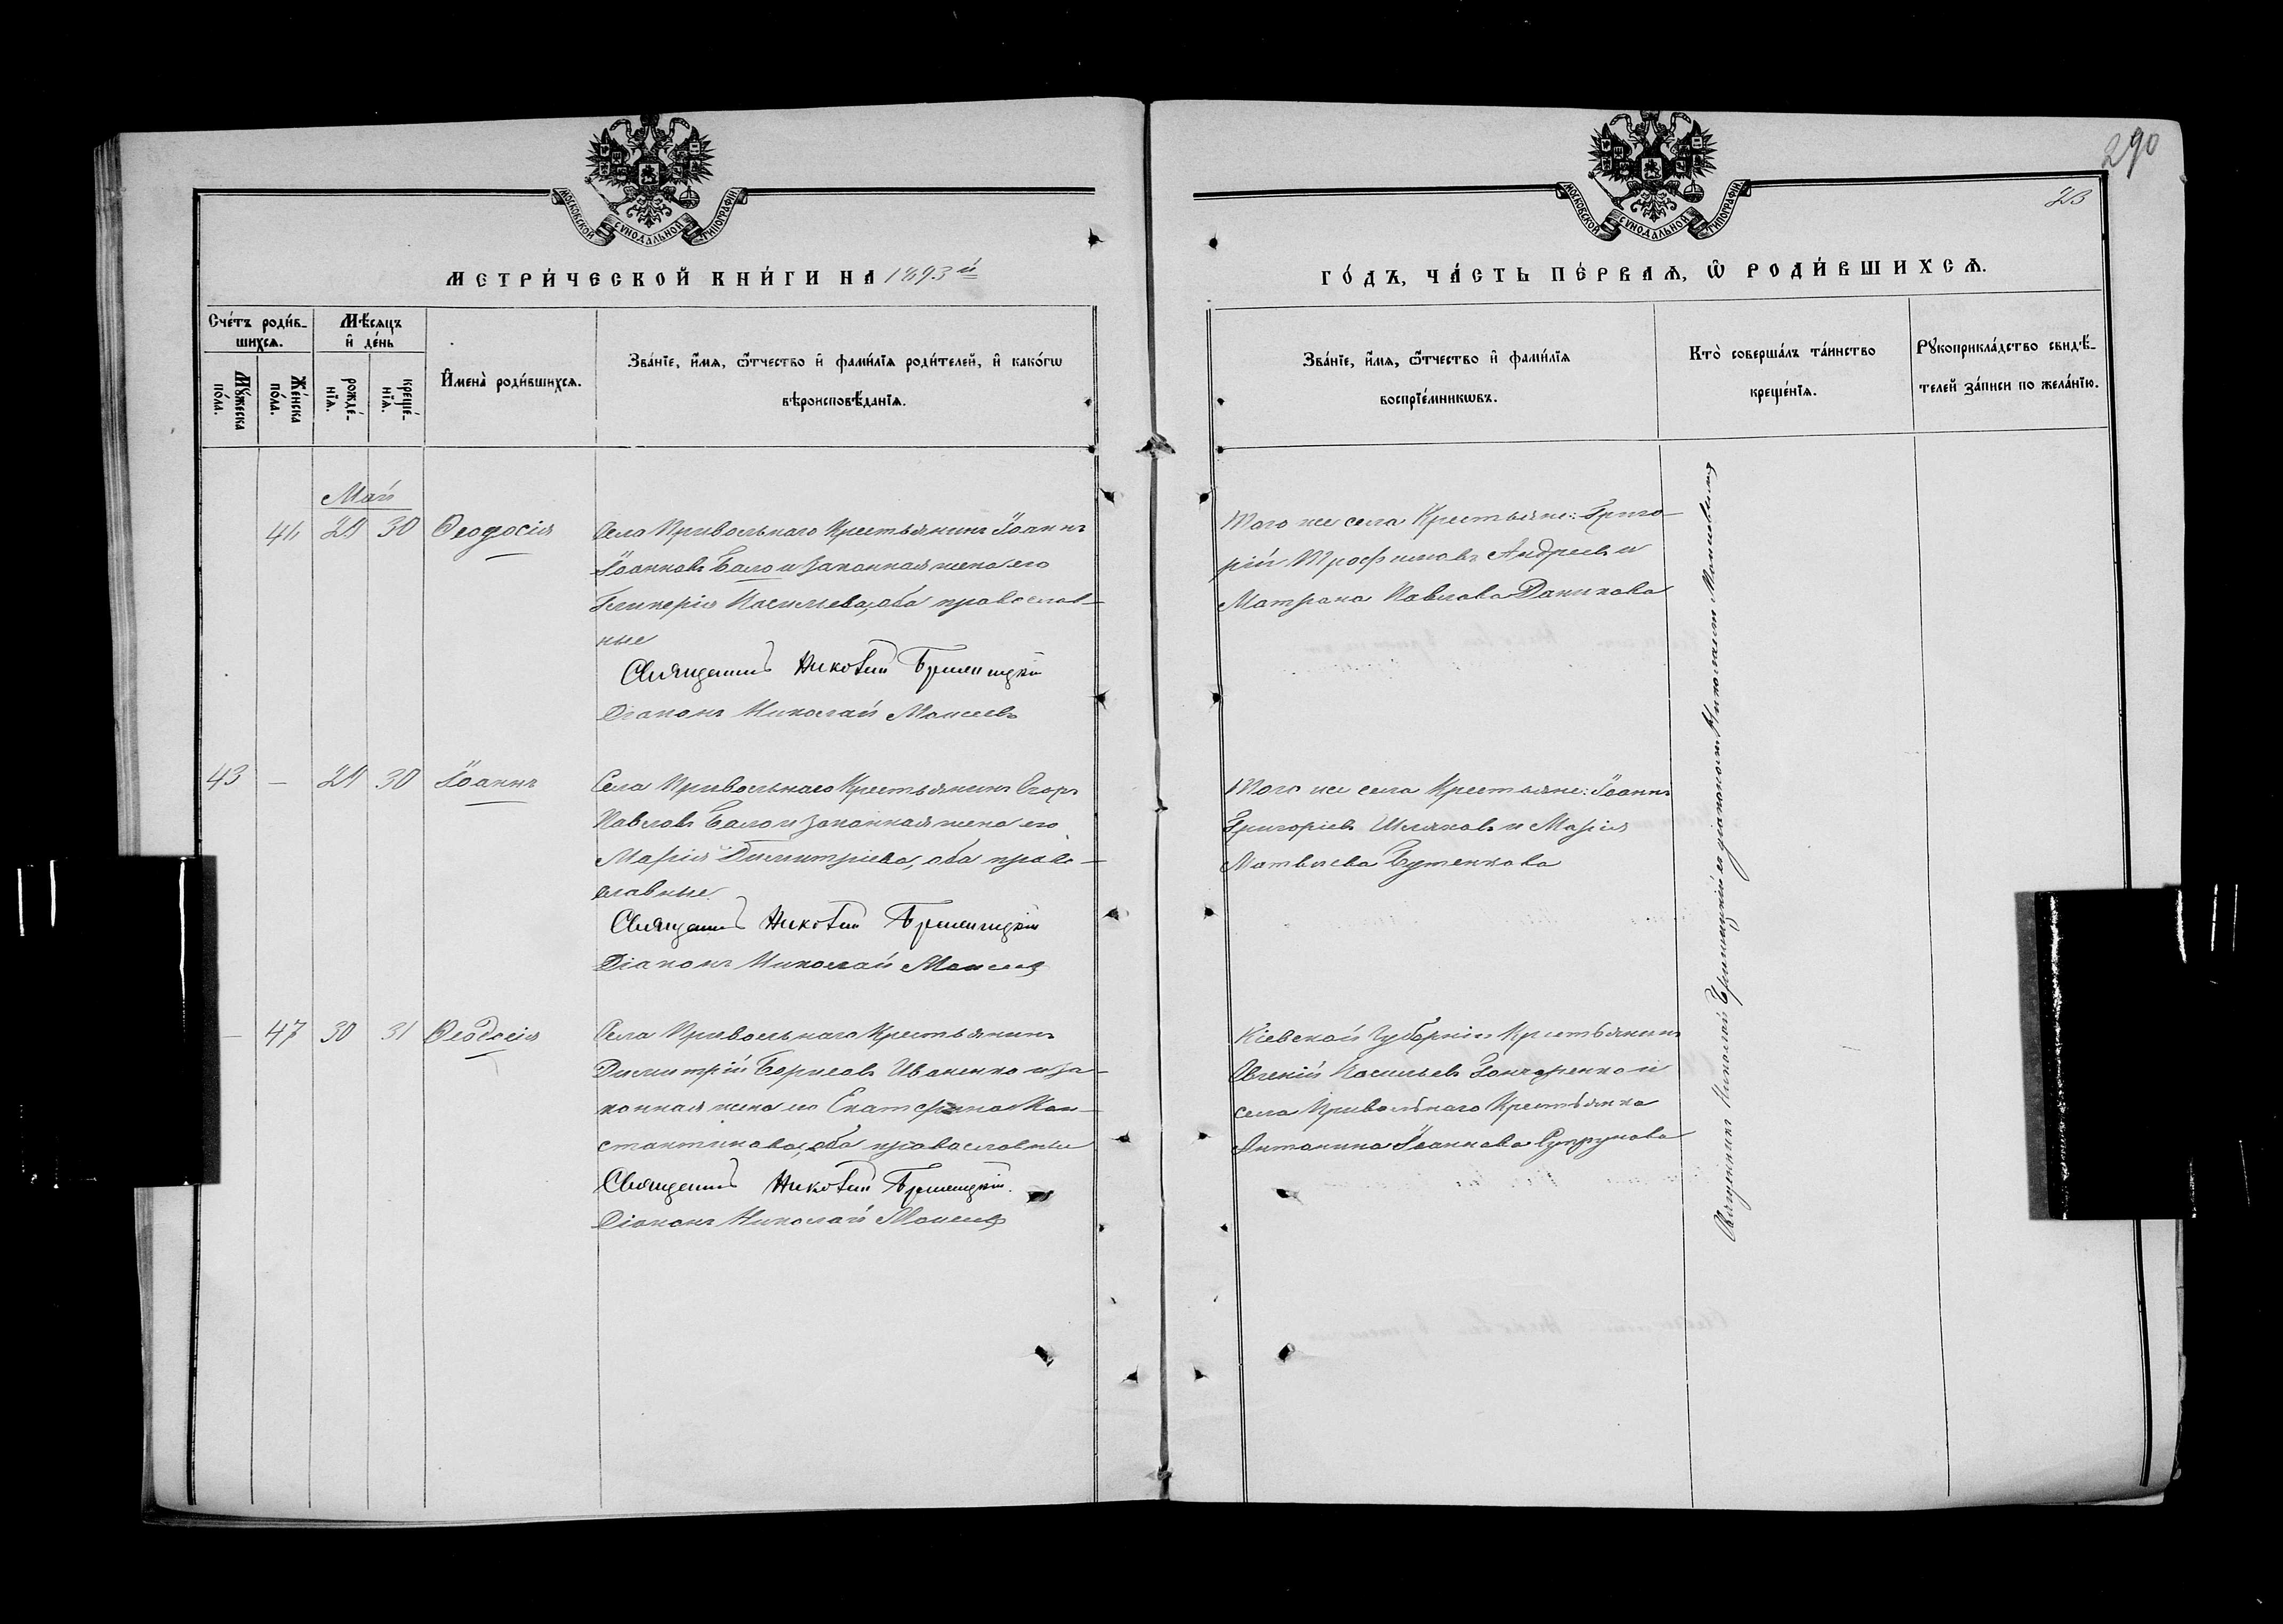 290
23
МОСКОВСКОЙ СѴНОДАЛЬНОЙ ТИПОГРАФІИ
МОСКОВСКОЙ СѴНОДАЛЬНОЙ ТИПОГРАФІИ
МЕТРИ́ЧЕСКОЙ КНИ́ГИ НА 1893й
ГО́ДЪ, ЧА́СТЬ ПЕ́РВАѦ, Ѽ РОДИ́ВШИХСѦ.
Сче́тъ роди́в-
шихсѧ.
Мꙋ́жеска по́ла.
Же́нска по́ла.
Мѣ́сѧцъ и де́нь
рожде́-нїѧ.
креще́-нїѧ.
Имена̀ роди́вшихсѧ.
Зва́нїе, и́мѧ, ѻ́тчество и фами́лїѧ роди́телей, и како́гѡ
вѣроисповѣ́данїѧ.
Зва́нїе, и́мѧ, ѻ́тчество и фами́лїѧ
воспрїе́мникѡвъ.
Кто̀ соверша́лъ та́инство
креще́нїѧ.
Рꙋкоприкла́дство свидѣ́-
телей за́писи по жела́нїю.
Май
46 29 30 Ѳеодосія
Села Привольнаго Крестьянинъ Іоаннъ
Іоанновъ Бало и законная жена его
Гликерія Васильева, оба православ-
ные
Священникъ Николай
Діаконъ Николай Моисеевъ
Того же села Крестьяне: Григо-
рій Трофимовъ Андреевъ и
Матрона Павлова Данилова
43 — 29 30 Іоаннъ
Села Привольнаго Крестьянинъ Егоръ
Павловъ Бало и законная жена его
Марія Димитріева, оба право-
славные.
Священникъ Николай
Діаконъ Николай Моисеевъ
Того же села Крестьяне: Іоаннъ
Григоріевъ Шляховъ и Марія
Матвѣева Бутенкова
— 47 30 31 Ѳеодосія
Села Привольнаго Крестьянинъ
Димитрій Борисовъ Иваненко и за-
конная жена его Екатерина Кон-
стантинова, оба православные
Священникъ Николай
Діаконъ Николай Моисеевъ
Кіевской Губерніи Крестьянинъ
Евгеній Васильевъ Гончаренко и
села Привольнаго Крестьянка
Антонина Іоаннова Супрунова
Священникъ Николай съ діакономъ Николаемъ Моисеевымъ